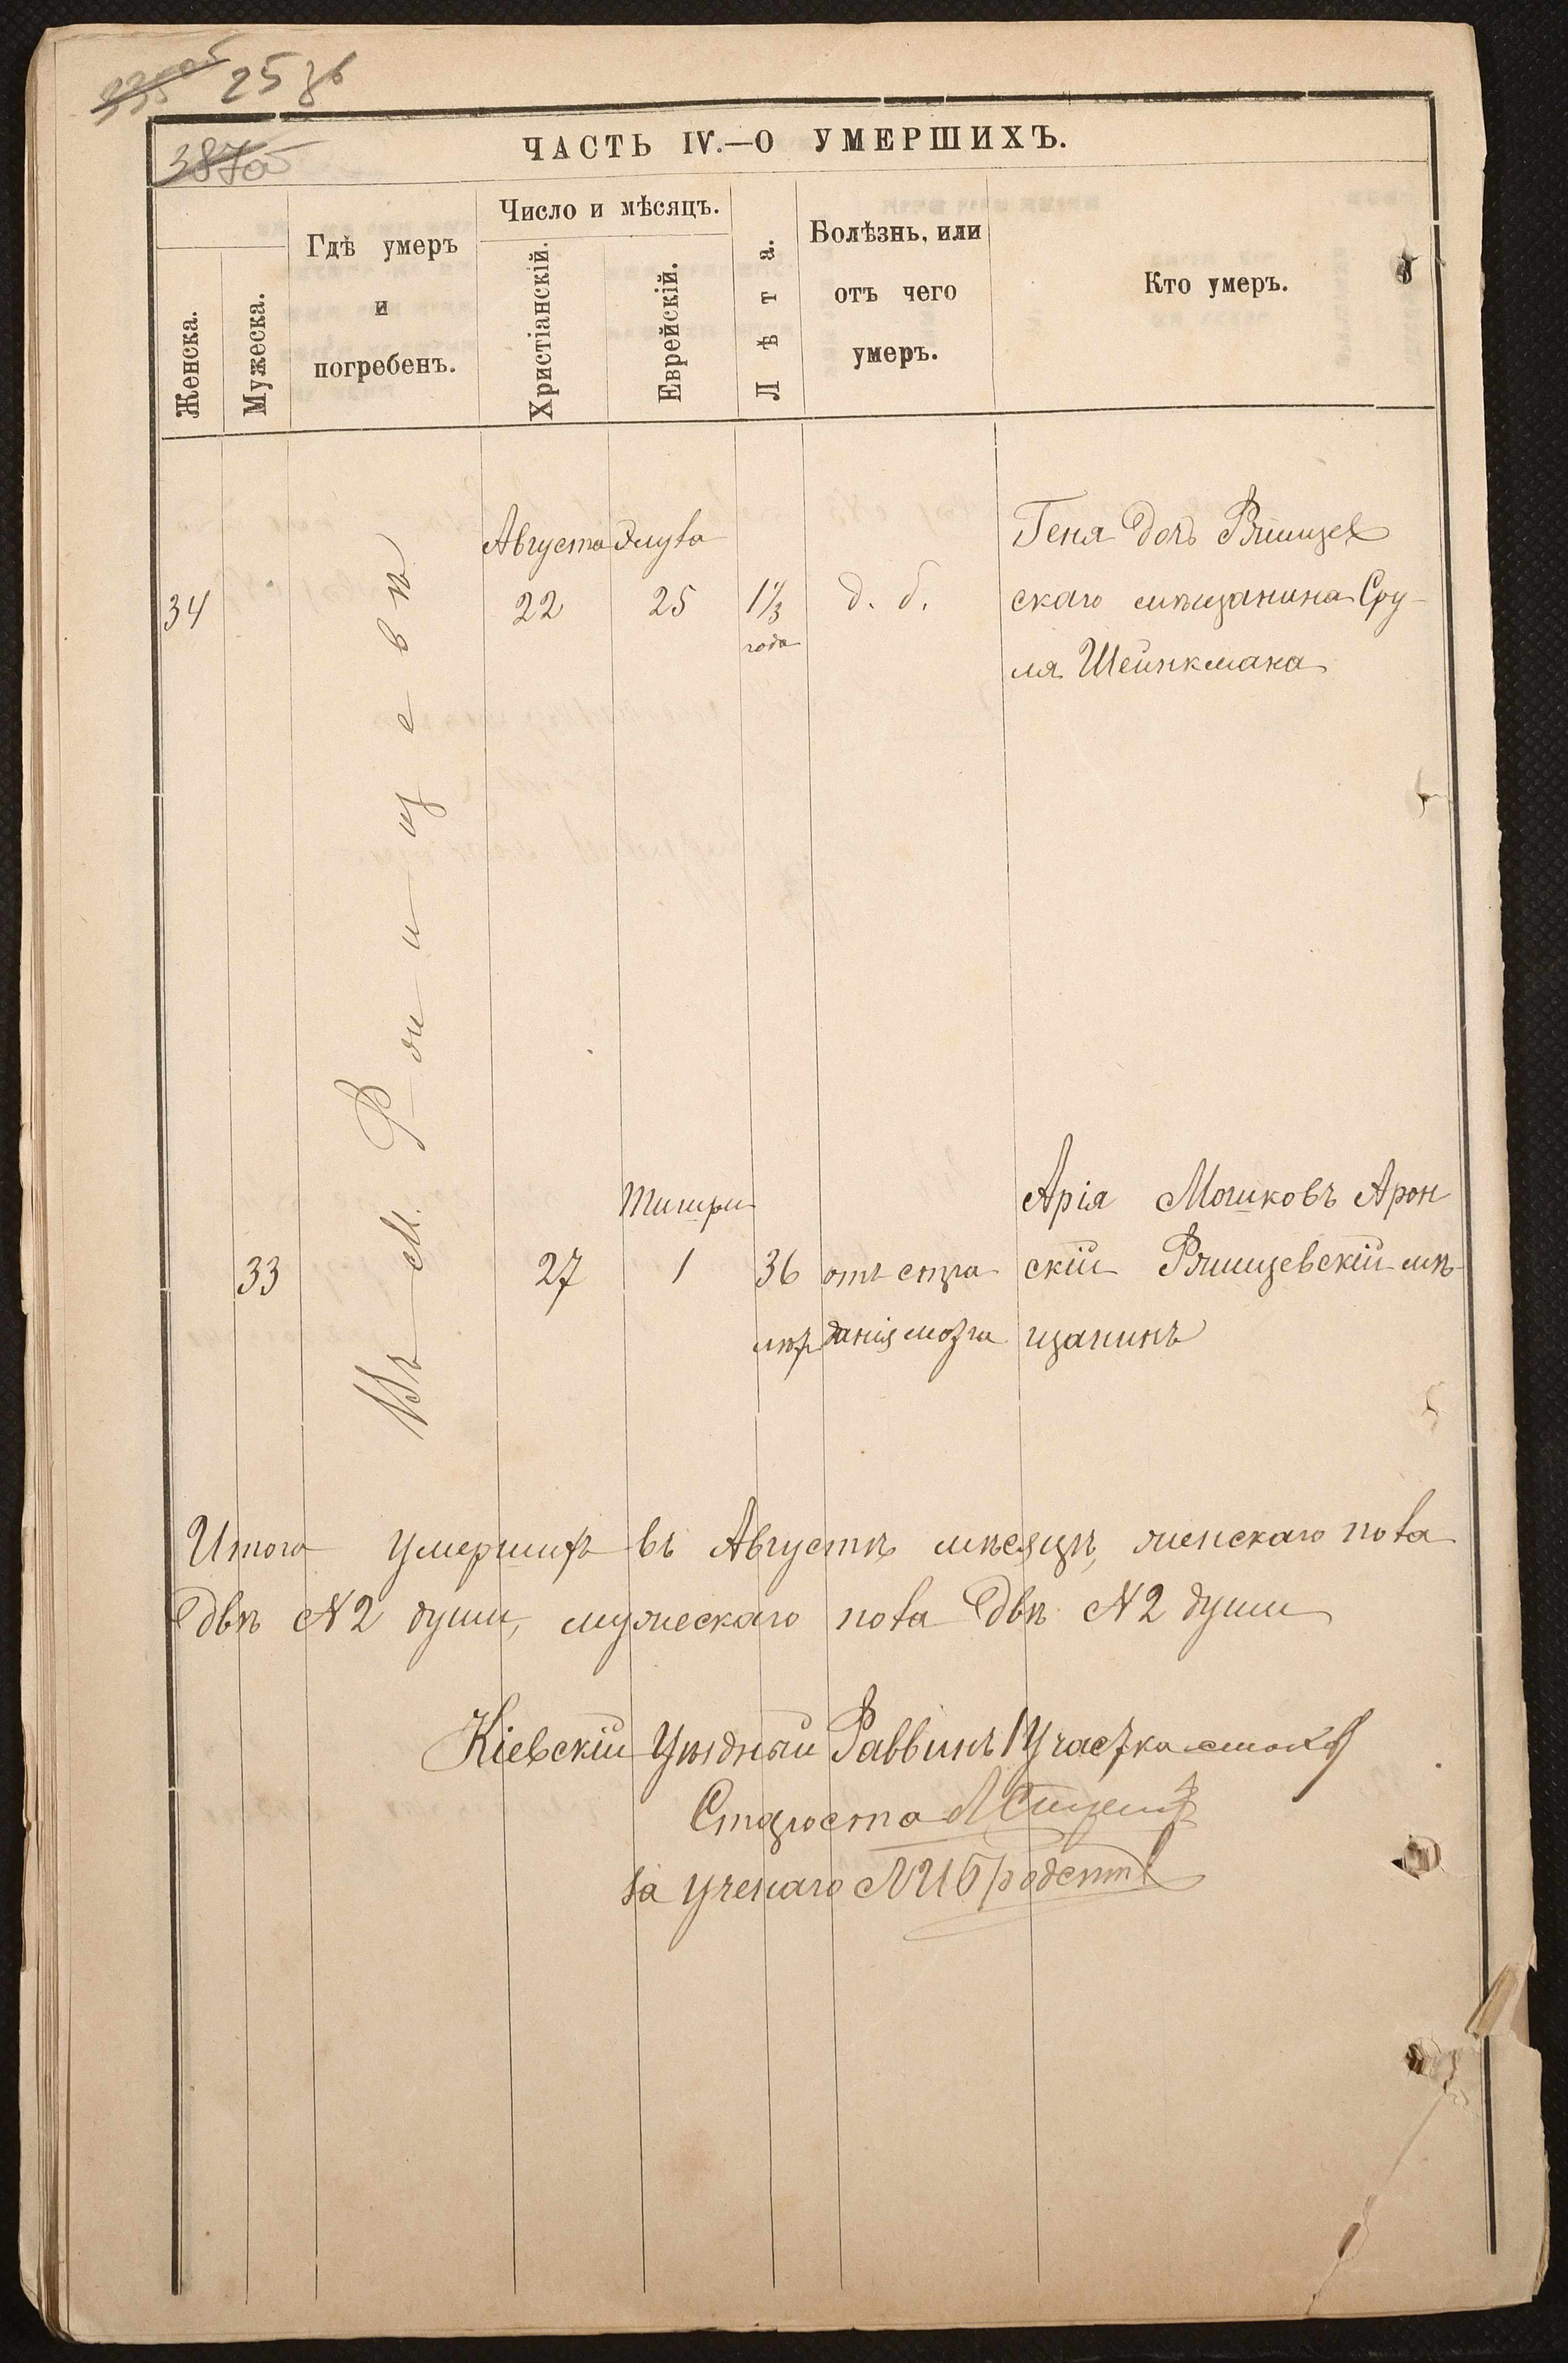 25 зв
387об
ЧАСТЬ IV.—О УМЕРШИХЪ.
Женска.
Мужеска.
Гдѣ умеръ
и
погребенъ.
Число и мѣсяцъ.
Христіанскій.
Еврейскій.
Лѣта.
Болѣзнь, или
отъ чего
умеръ.
Кто умеръ.
Въ м. Ржищевѣ
34
Августа
22
Элула
25
1 1/3
года
д. б.
Геня дочь Ржищев
скаго мѣщанина Сру-
ля Шейнкмана
33
27
Тишри
1
36
лѣт
отъ стра
данія мозга
Арія Мошковъ Арон
скій Ржищевскій мѣ-
щанинъ
Итого умершихъ въ Августѣ мѣсяцѣ, женскаго пола
двѣ №2 души, мужескаго пола двѣ №2 души
Кіевскій Уѣздный Раввинъ 1 Участка
Староста
За ученаго